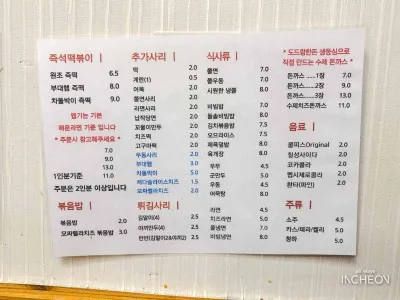 즉석떡볶이 |
원조 즉떡 6.5
부대햄 즉떡 8.0
차돌박이 즉떡 9.0
맵기는 기본
매운라면 기준 입니다
* 주문시 참고해주세요 *
9.0
11.0
13.0
1인분기준 11.0
주문은 2인분 이상입니다
볶음밥 |
볶음밥 2.0
모짜렐라치즈 볶음밥 3.0
추가사리 |
떡 2.0
계란(1) 0.5
어묵 2.0
쫄면사리 2.0
라면사리 2.0
납작당면 2.0
꼬불이만두 2.0
치즈떡 2.0
고구마떡 2.0
우동사리 2.0
부대햄 3.0
차돌박이 5.0
체다슬라이스치즈 1.5
모짜렐라치즈 2.0
튀김사리 |
김말이(4) 2.0
야끼만두(4) 2.0
반반(김말이2&야끼2) 2.0
식사류 |
쫄면 7.0
물쫄면 7.0
시원한 냉콩 8.0
비빔밥 7.0
돌솥비빔밥 8.0
김치볶음밥 8.0
오므라이스 8.0
제육덮밥 8.0
육개장 9.0
우동 4.5
군만두 4.0
어묵탕 8.0
라면 4.5
치즈라면 5.0
물냉면 8.0
비빔냉면 8.0
* 도드람한돈 생등심으로
직접 만드는 수제 돈까스 *
돈까스 ......1장 7.0
돈까스 ......2장 9.0
돈까스 ......3장 13.0
수제치즈돈까스 11.0
음료 |
쿨피스Original 2.0
칠성사이다 2.0
코카콜라 2.0
펩시제로콜라 2.0
환타(파인) 2.0
주류 |
소주 4.5
카스/테라/켈리 4.5
청하 5.0
all ways
INCHEON